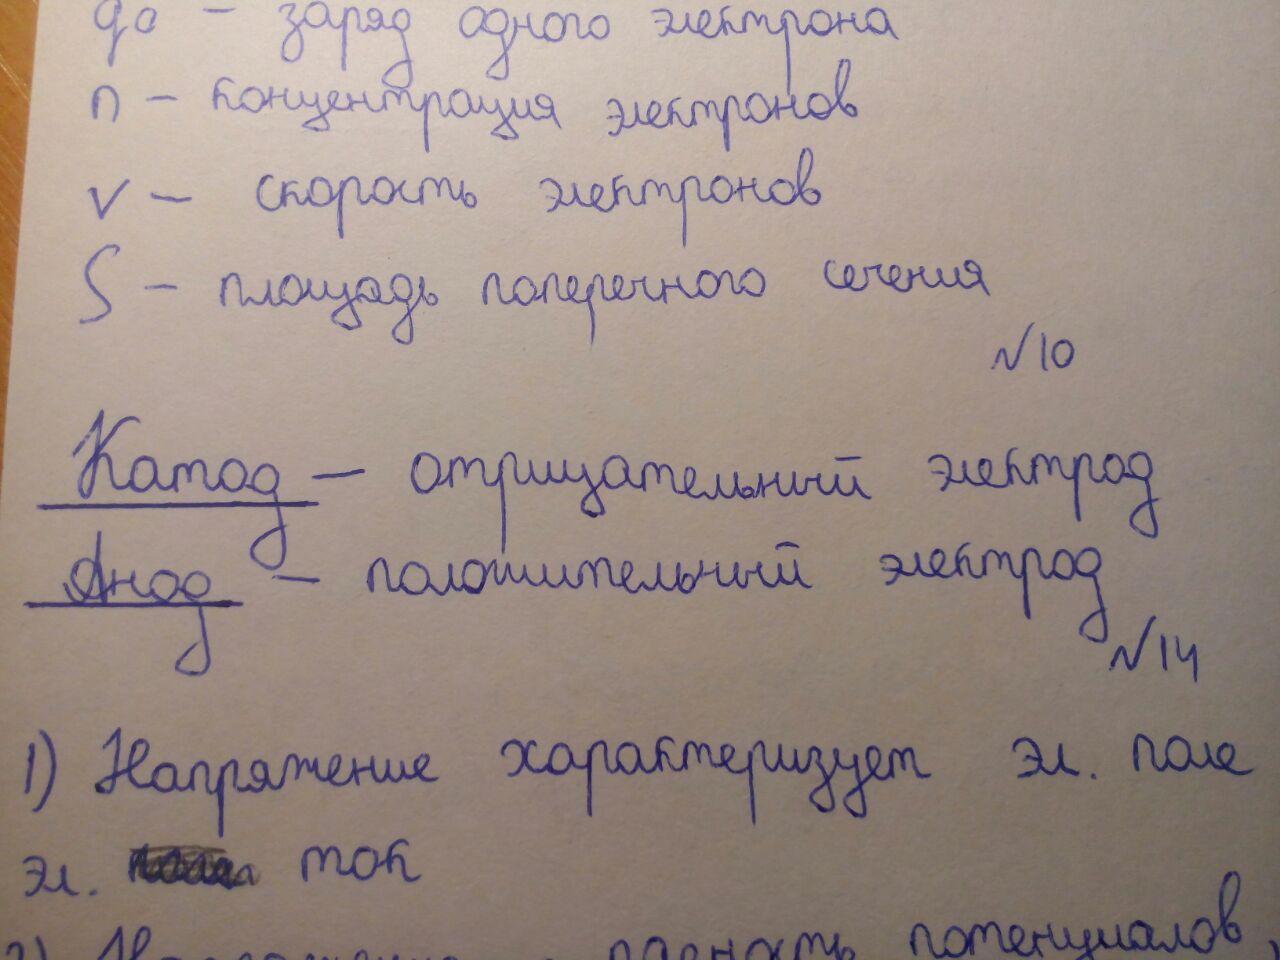 q₀ – заряд одного электрона
n – концентрация электронов
v – скорость электронов
S – площадь поперечного сечения
№10
Катод – отрицательный электрод
Анод – положительный электрод
№14
1) Напряжение характеризует эл. поле
эл. ток
2) Напряжение - разность потенциалов,